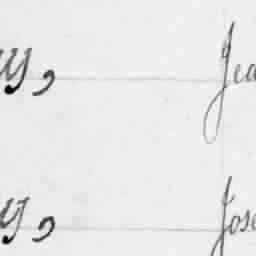 y, Jea
y, Jose